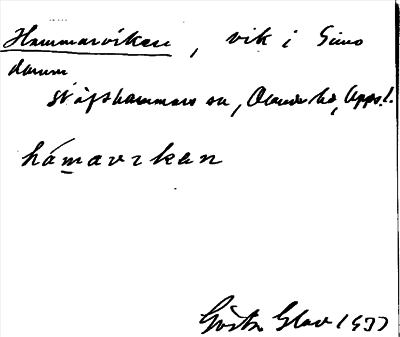 Hammarviken, vik i Gimo
damm
Skäfthammars sn, Olands hd, Uppl.
hámavikan
Gösta Glav 1933